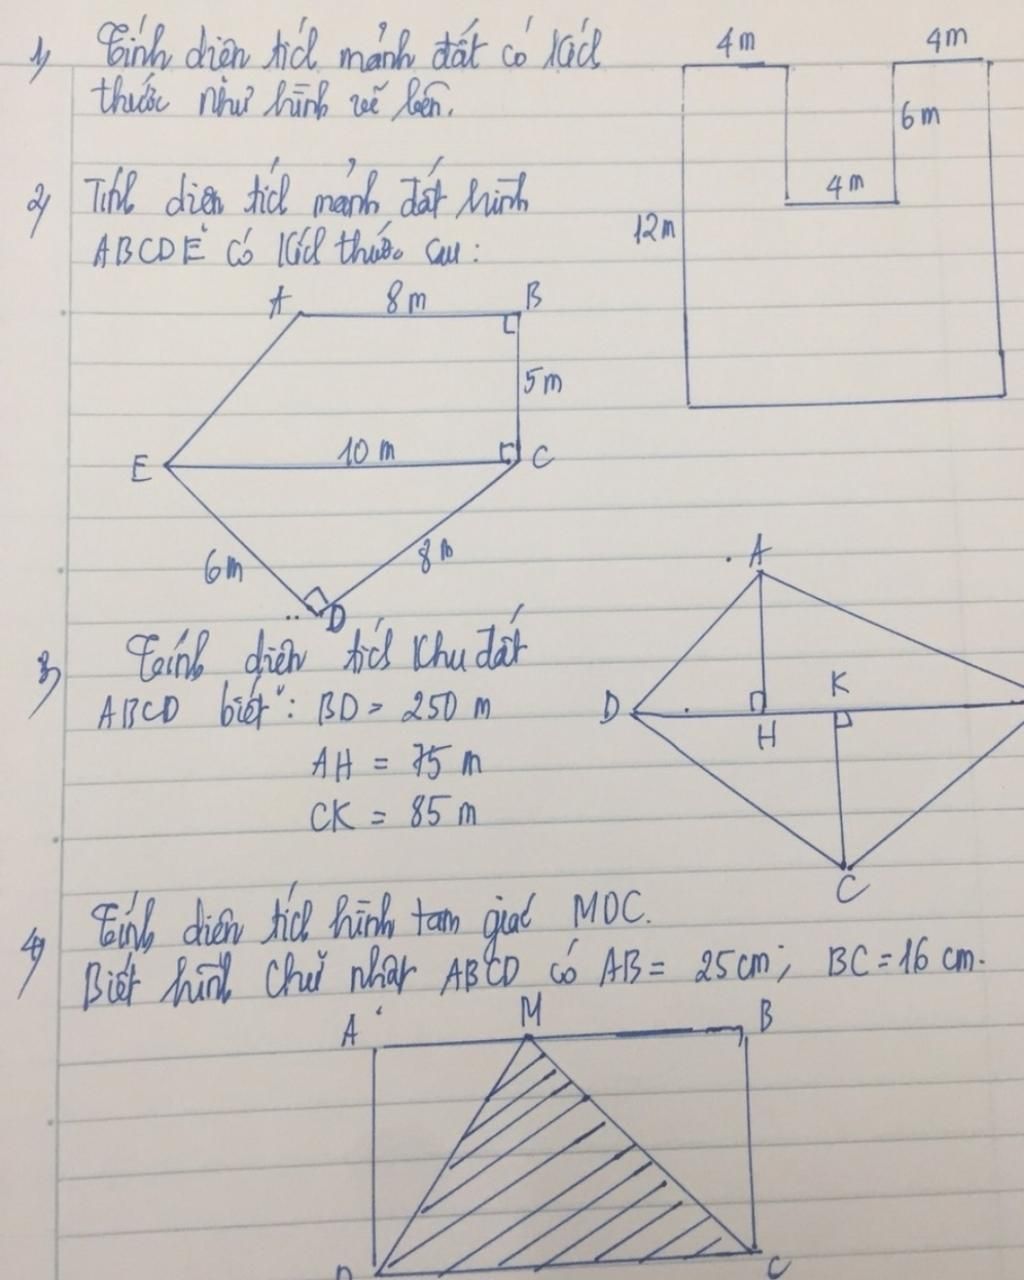 1) Tính diện tích mảnh đất có kích
thước như hình vẽ bên.
4m
4m
6m
4m
12m
2) Tính diện tích mảnh đất hình
ABCDE có kích thước sau:
A
8m
B
5m
E
10 m
C
6m
8m
D
3) Tính diện tích khu đất
ABCD biết: BD = 250 m
AH = 75 m
CK = 85 m
A
D
H
K
C
4) Tính diện tích hình tam giác MDC.
Biết hình chữ nhật ABCD có AB = 25cm; BC = 16 cm.
A
M
B
D
C